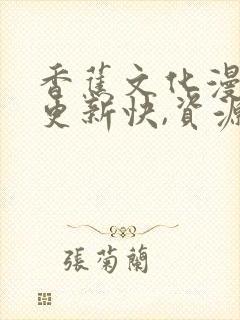 香蕉文化漫
更新快,資源
張菊蘭